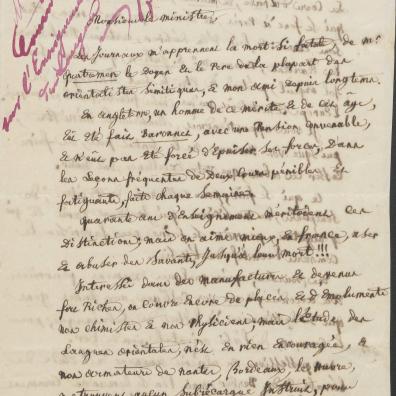 Monsieur le ministre,
Les Journaux m'apprennent la mort si fatale, de mr
quatremer le Doyen et le Pere de la plupart des
orientalistes Sémitiques, et mon ami depuis longtems.
En angleterre, un homme de ce mérite et de cet âge,
Eut été fait Baronnet, avec une Pension convenable,
et n'eut pas été forcé d'Epuiser ses forces, Dans
les Leçons fréquentes de deux Cours pénibles et
fatiguants, faits chaque Semaine
quarante ans d'Enseignement méritoient ces
Distinctions; mais on aime mieux, en france, user
et abuser des Savants, jusqu'à leur mort!!!
Interessés dans des manufactures et devenus
fort Riches, on couvre encore de places et d'Emoluments
nos chimistes et nos Physiciens; mais l'Etude des
Langues orientales, n'est en rien encouragée, et
nos armateurs de nantes, Bordeaux, le havre,
aucun Subrécargue Instruit, pour